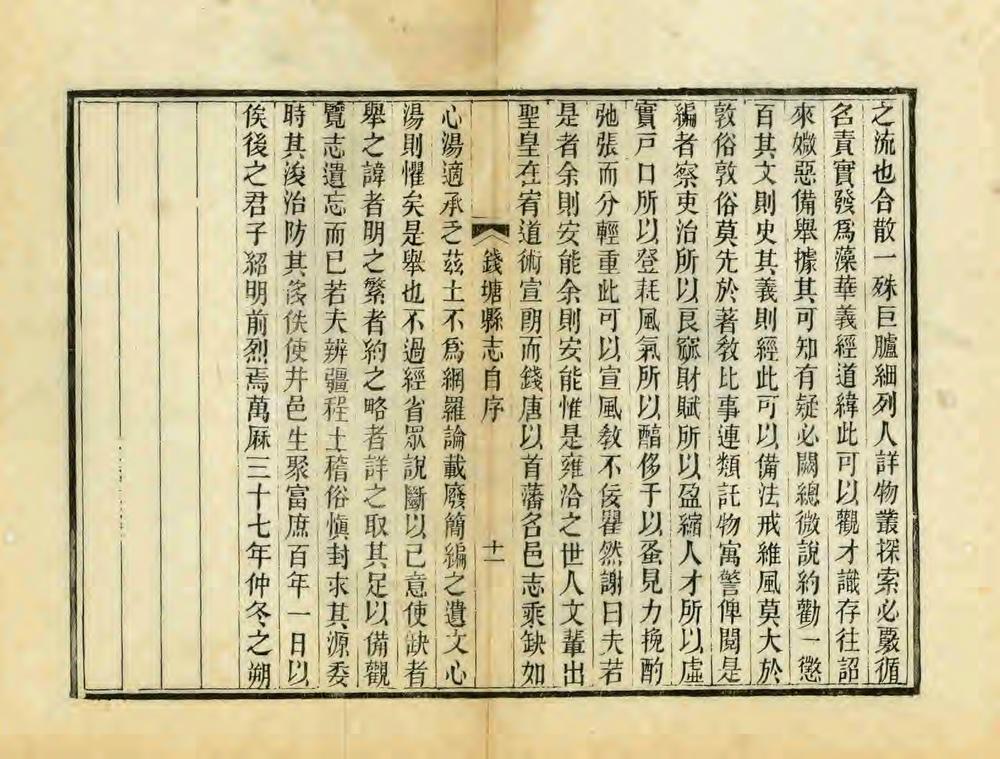 之流也合散一殊巨臚細列人詳物叢探索必覈循
名責實發爲藻華義經道緯此可以觀才識存往詔
來媺惡備舉據其可知有疑必闕總微說約勸一懲
百其文則史其義則經此可以備法戒維風莫大於
敦俗敦俗莫先於著敎比事連類託物寓警俾閱是
編者察吏治所以良窳財賦所以盈縮人才所以虛
實戸口所以登耗風氣所以醕侈于以蚤見力挽酌
弛張而分輕重此可以宣風敎不佞瞿然謝曰夫若
是者余則安能余則安能惟是雍洽之世人文輩出
聖皇在宥道術宣朗而錢唐以首藩名邑志乘缺如
錢塘縣志自序
十一
心湯適承乏茲土不爲網羅論載廢簡編之遺文心
湯則懼矣是舉也不過經省眾說斷以已意使缺者
舉之諱者明之繁者約之略者詳之取其足以備觀
覽志遺忘而已若夫辨疆程土稽俗愼封求其源委
時其浚治防其佚使井邑生聚富庶百年一日以
俟後之君子紹明前烈焉萬厤三十七年仲冬之朔